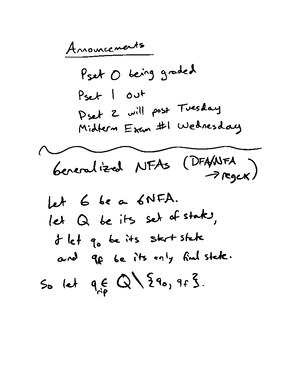 Announcements
Pset 0 being graded
Pset 1 out
Pset 2 will post Tuesday
Midterm Exam #1 Wednesday
Generalized NFAs (DFA/NFA
→ regex)
Let G be a GNFA.
Let Q be its set of states,
& let q0 be its start state
and qf be its only final state.
So let qrip ∈ Q \ {q0, qf}.